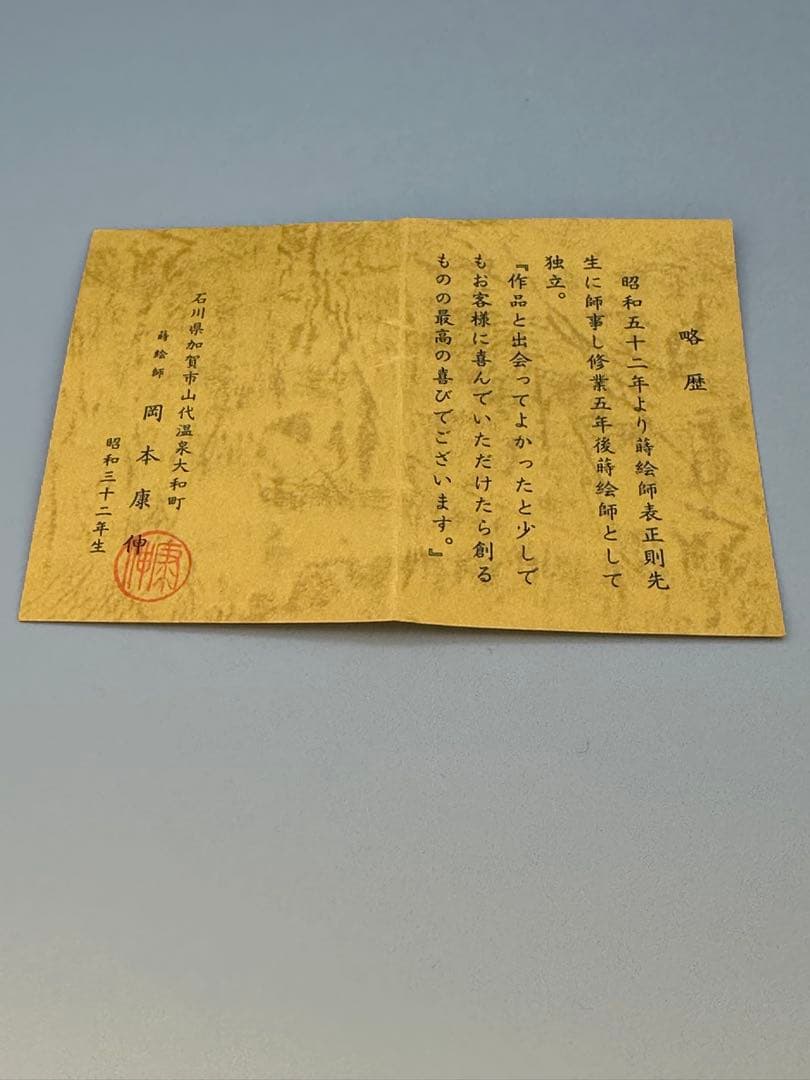 略歴
昭和五十二年より蒔絵師表正則先
生に師事し修業五年後蒔絵師として
独立。
『作品と出会ってよかったと少しで
もお客様に喜んでいただけたら創る
ものの最高の喜びでございます。』
石川県加賀市山代温泉大和町
蒔絵師 岡本康伸
昭和三十二年生
康伸